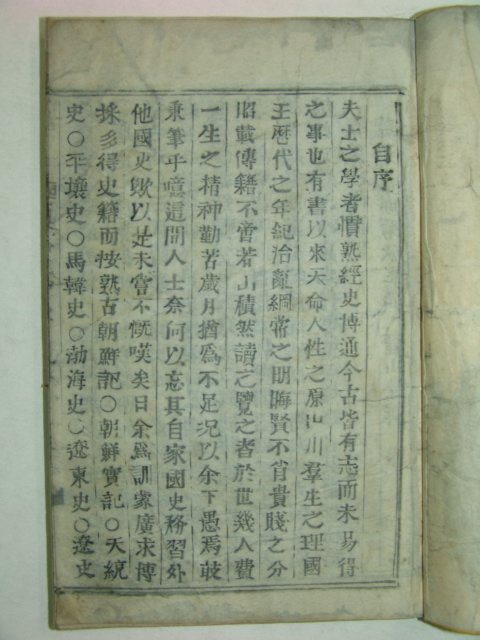 自序
夫士之學者慣熟經史博通今古皆有志而未易得
之事也有書以來天命人性之原山川羣生之理國
王歷代之年紀治亂綱常之明晦賢不肖貴賤之分
昭載傳籍不啻若山積然讀之覽之者於世幾人費
一生之精神勤苦歲月猶爲不足況以余下愚焉敢
秉筆乎噫這間人士奈何以忘其自家國史務習外
他國史歟以是未嘗不慨嘆矣日余爲訓家廣求博
採多得史籍而按熟古朝鮮記○朝鮮實記○天統
史○平壤史○馬韓史○渤海史○遼東史○遼史